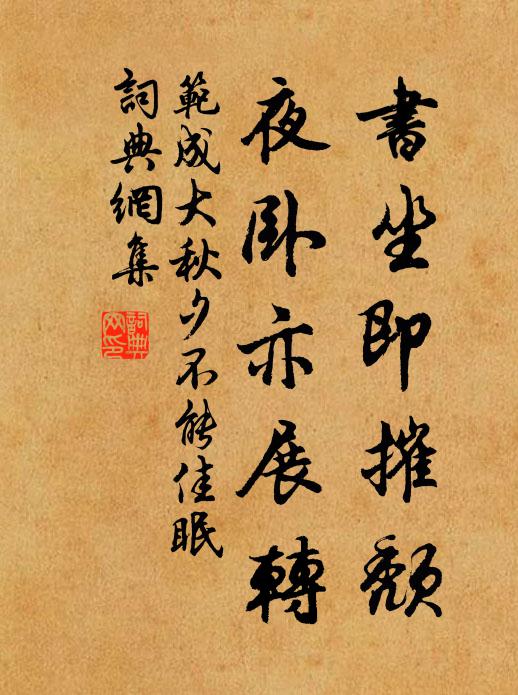 書坐即摧頹
夜卧亦展轉
範成大秋夕不能佳眠
詞典網集
詞典
网印